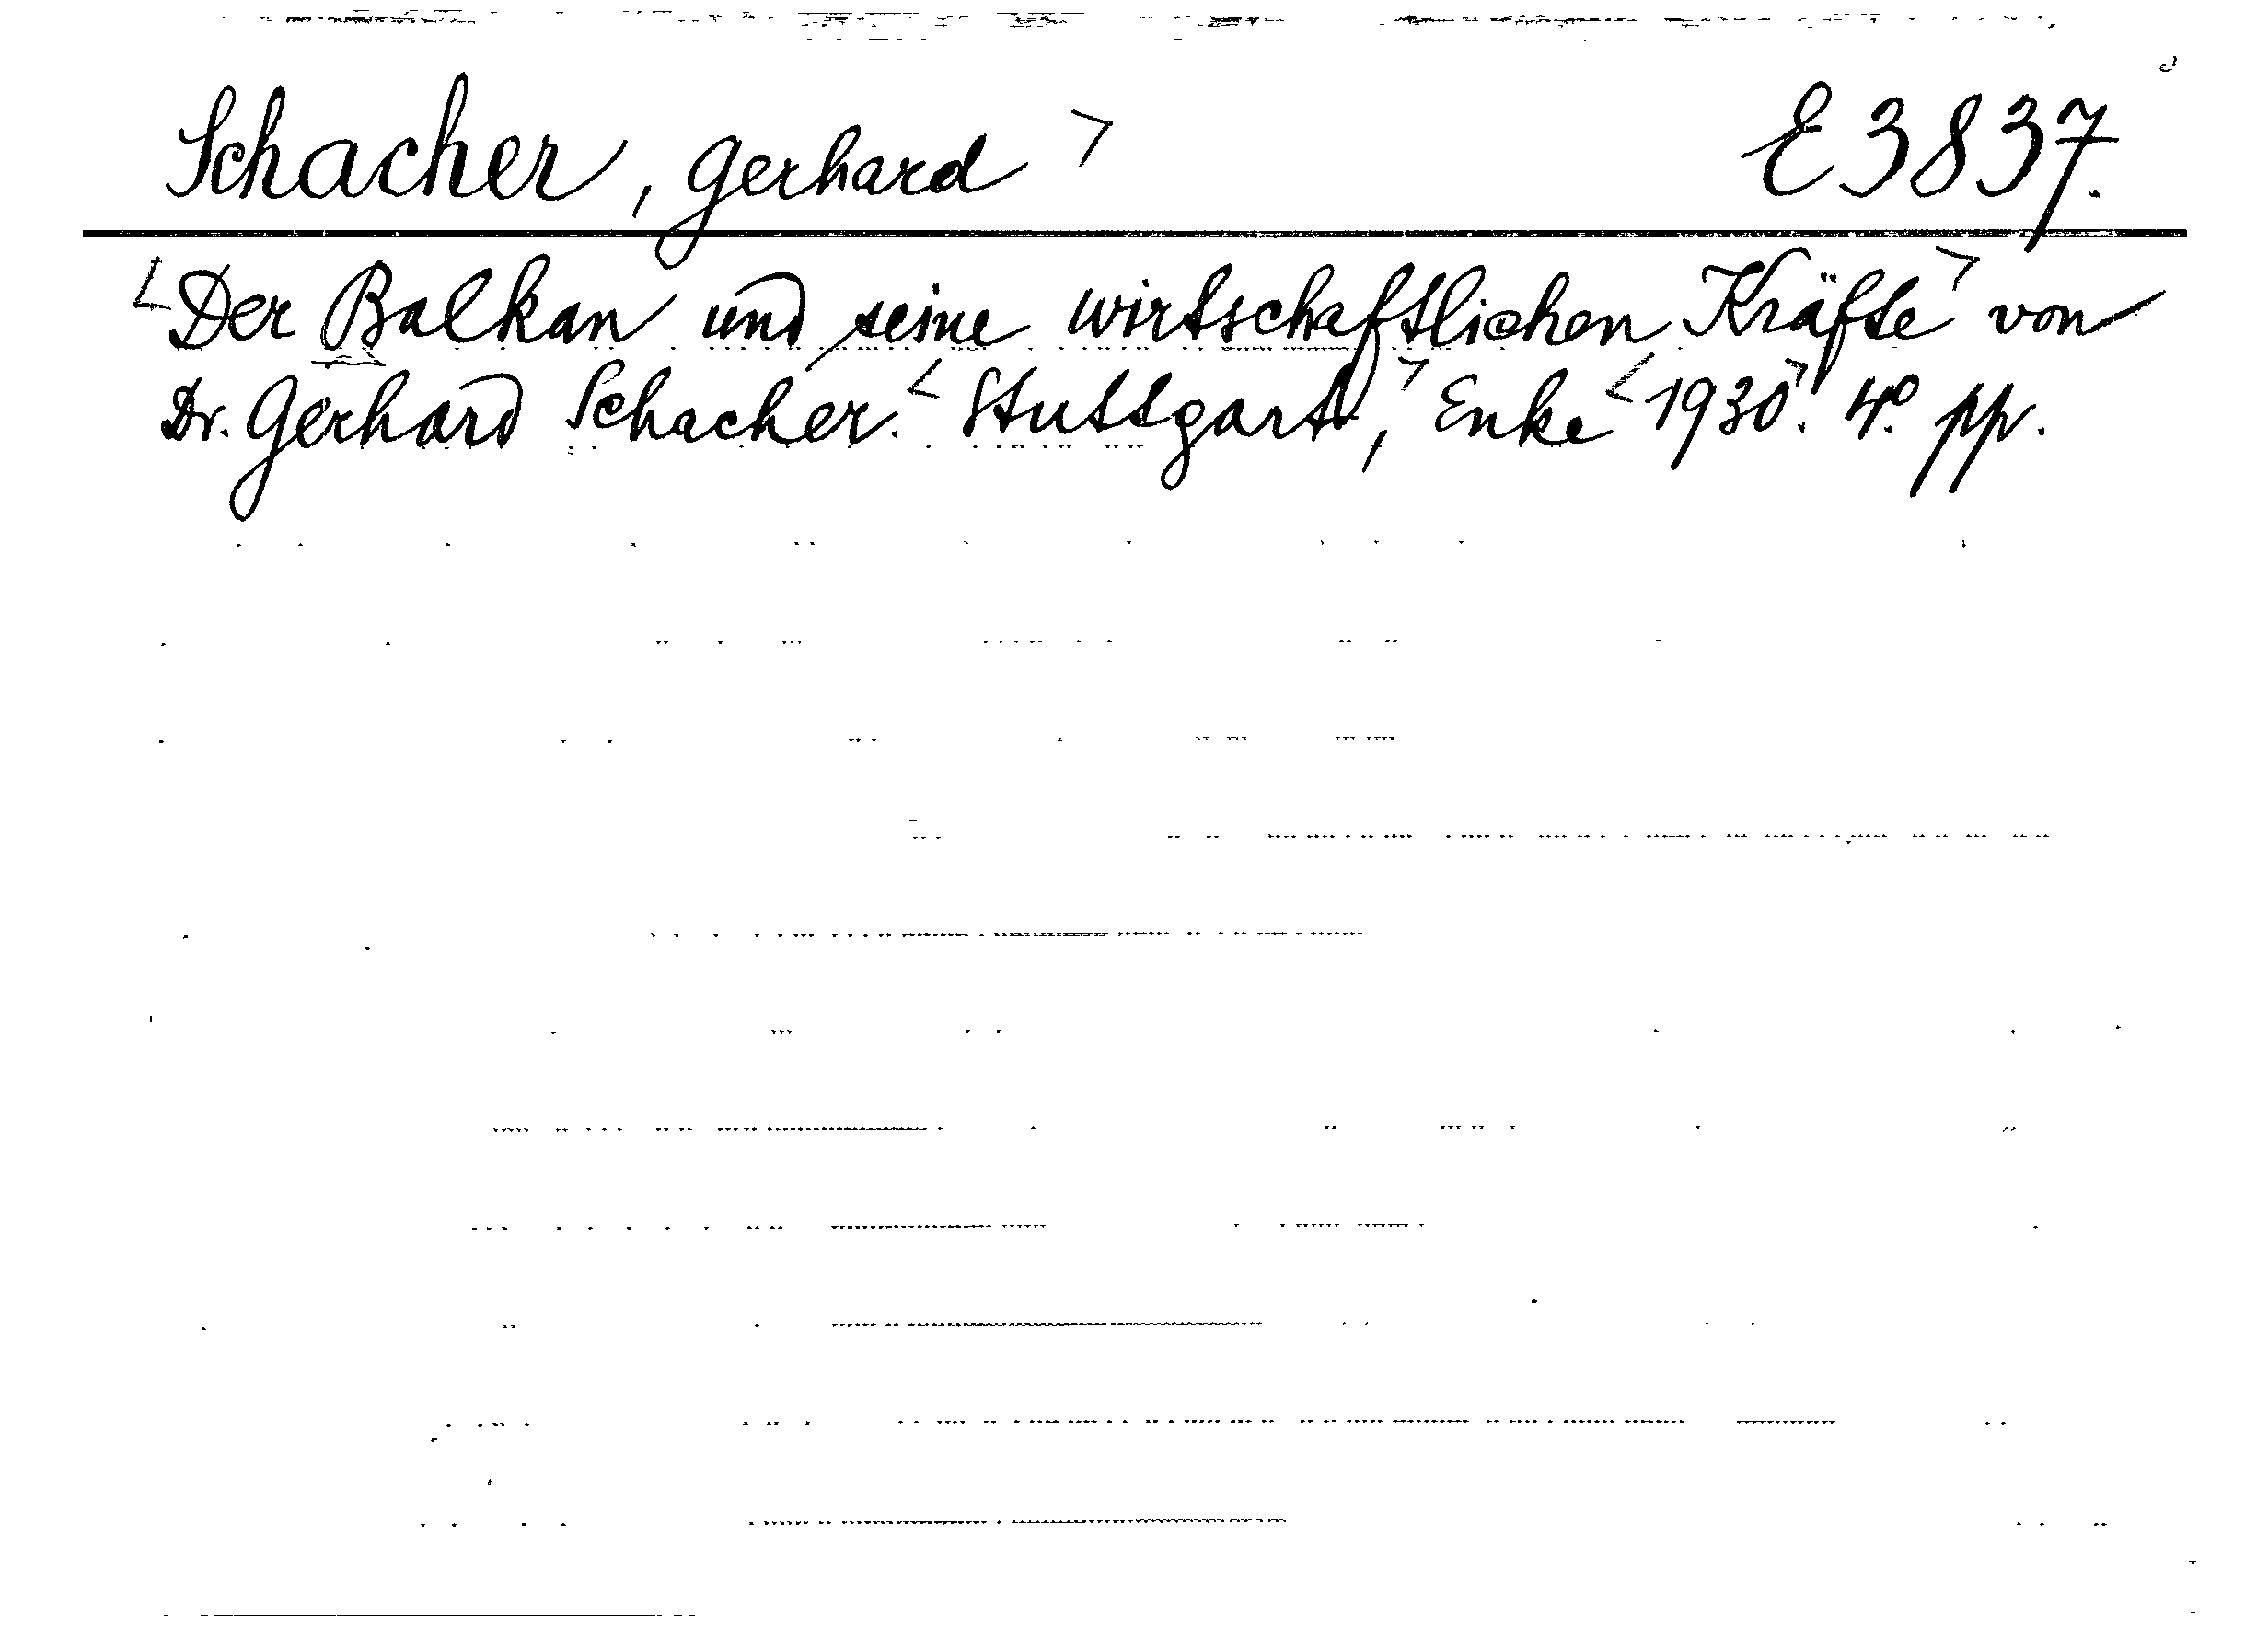 Schacher, Gerhard > E 3837.
<Der Balkan und seine wirtschaftlichen Kräfte> von
Dr. Gerhard Schacher. <Stuttgart,> Enke <1930>. 4º. pp.